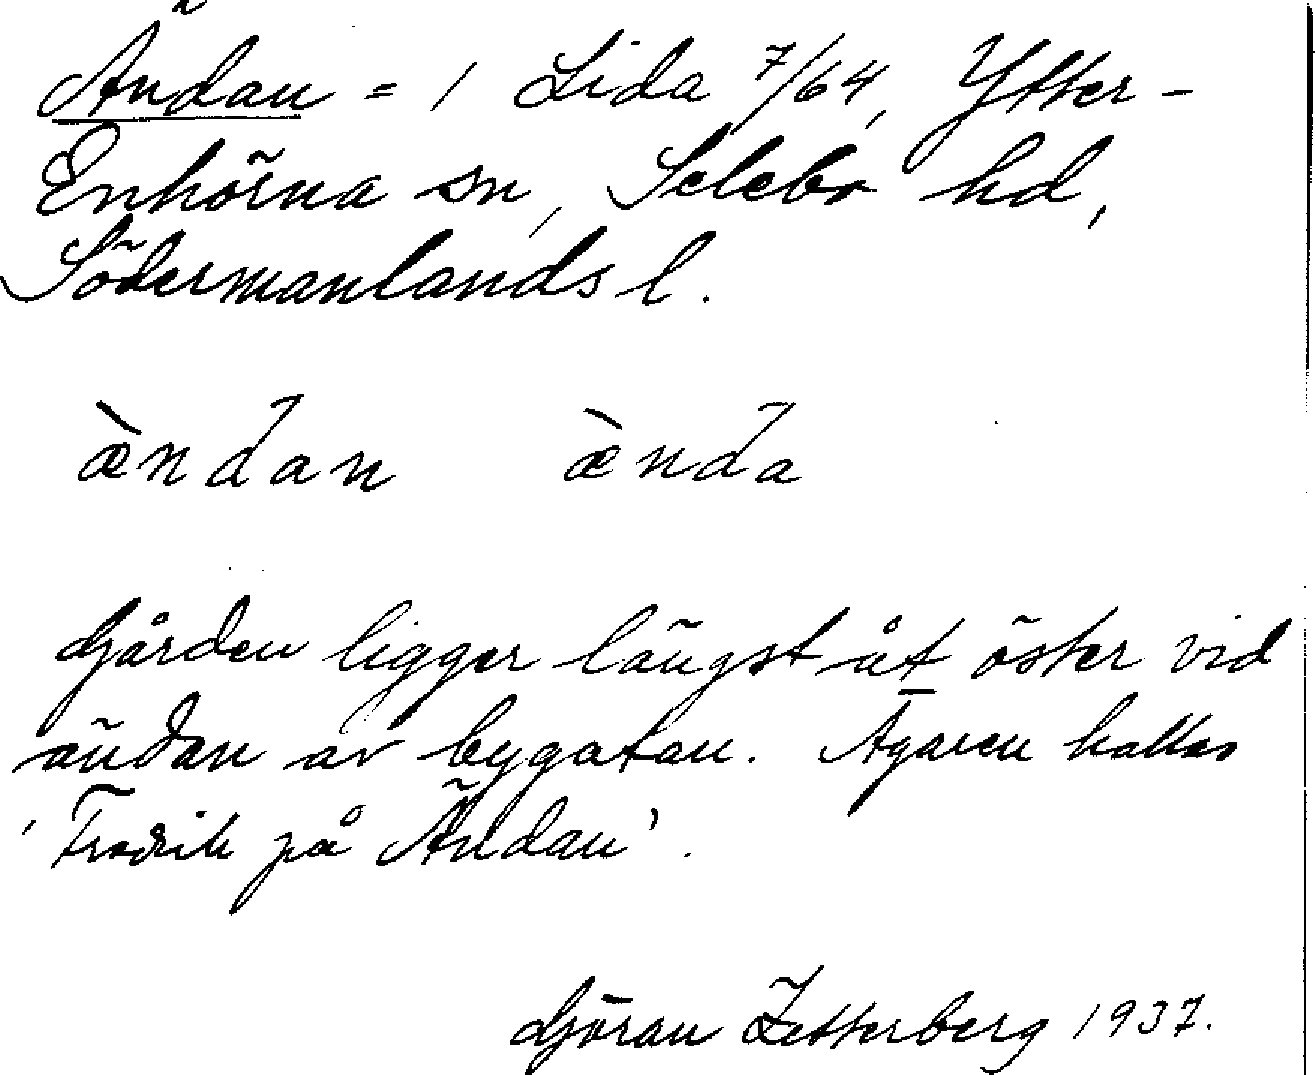 Ändan = 1 Lida 7/64, Ytter-
Enhörna sn, Selebo hd,
Södermanlands l.
æ̀ndan æ̀nda
Gården ligger längst åt öster vid
ändan av bygatan. Ägaren kallas
'Fredrik på Ändan'.
Göran Zetterberg 1937.